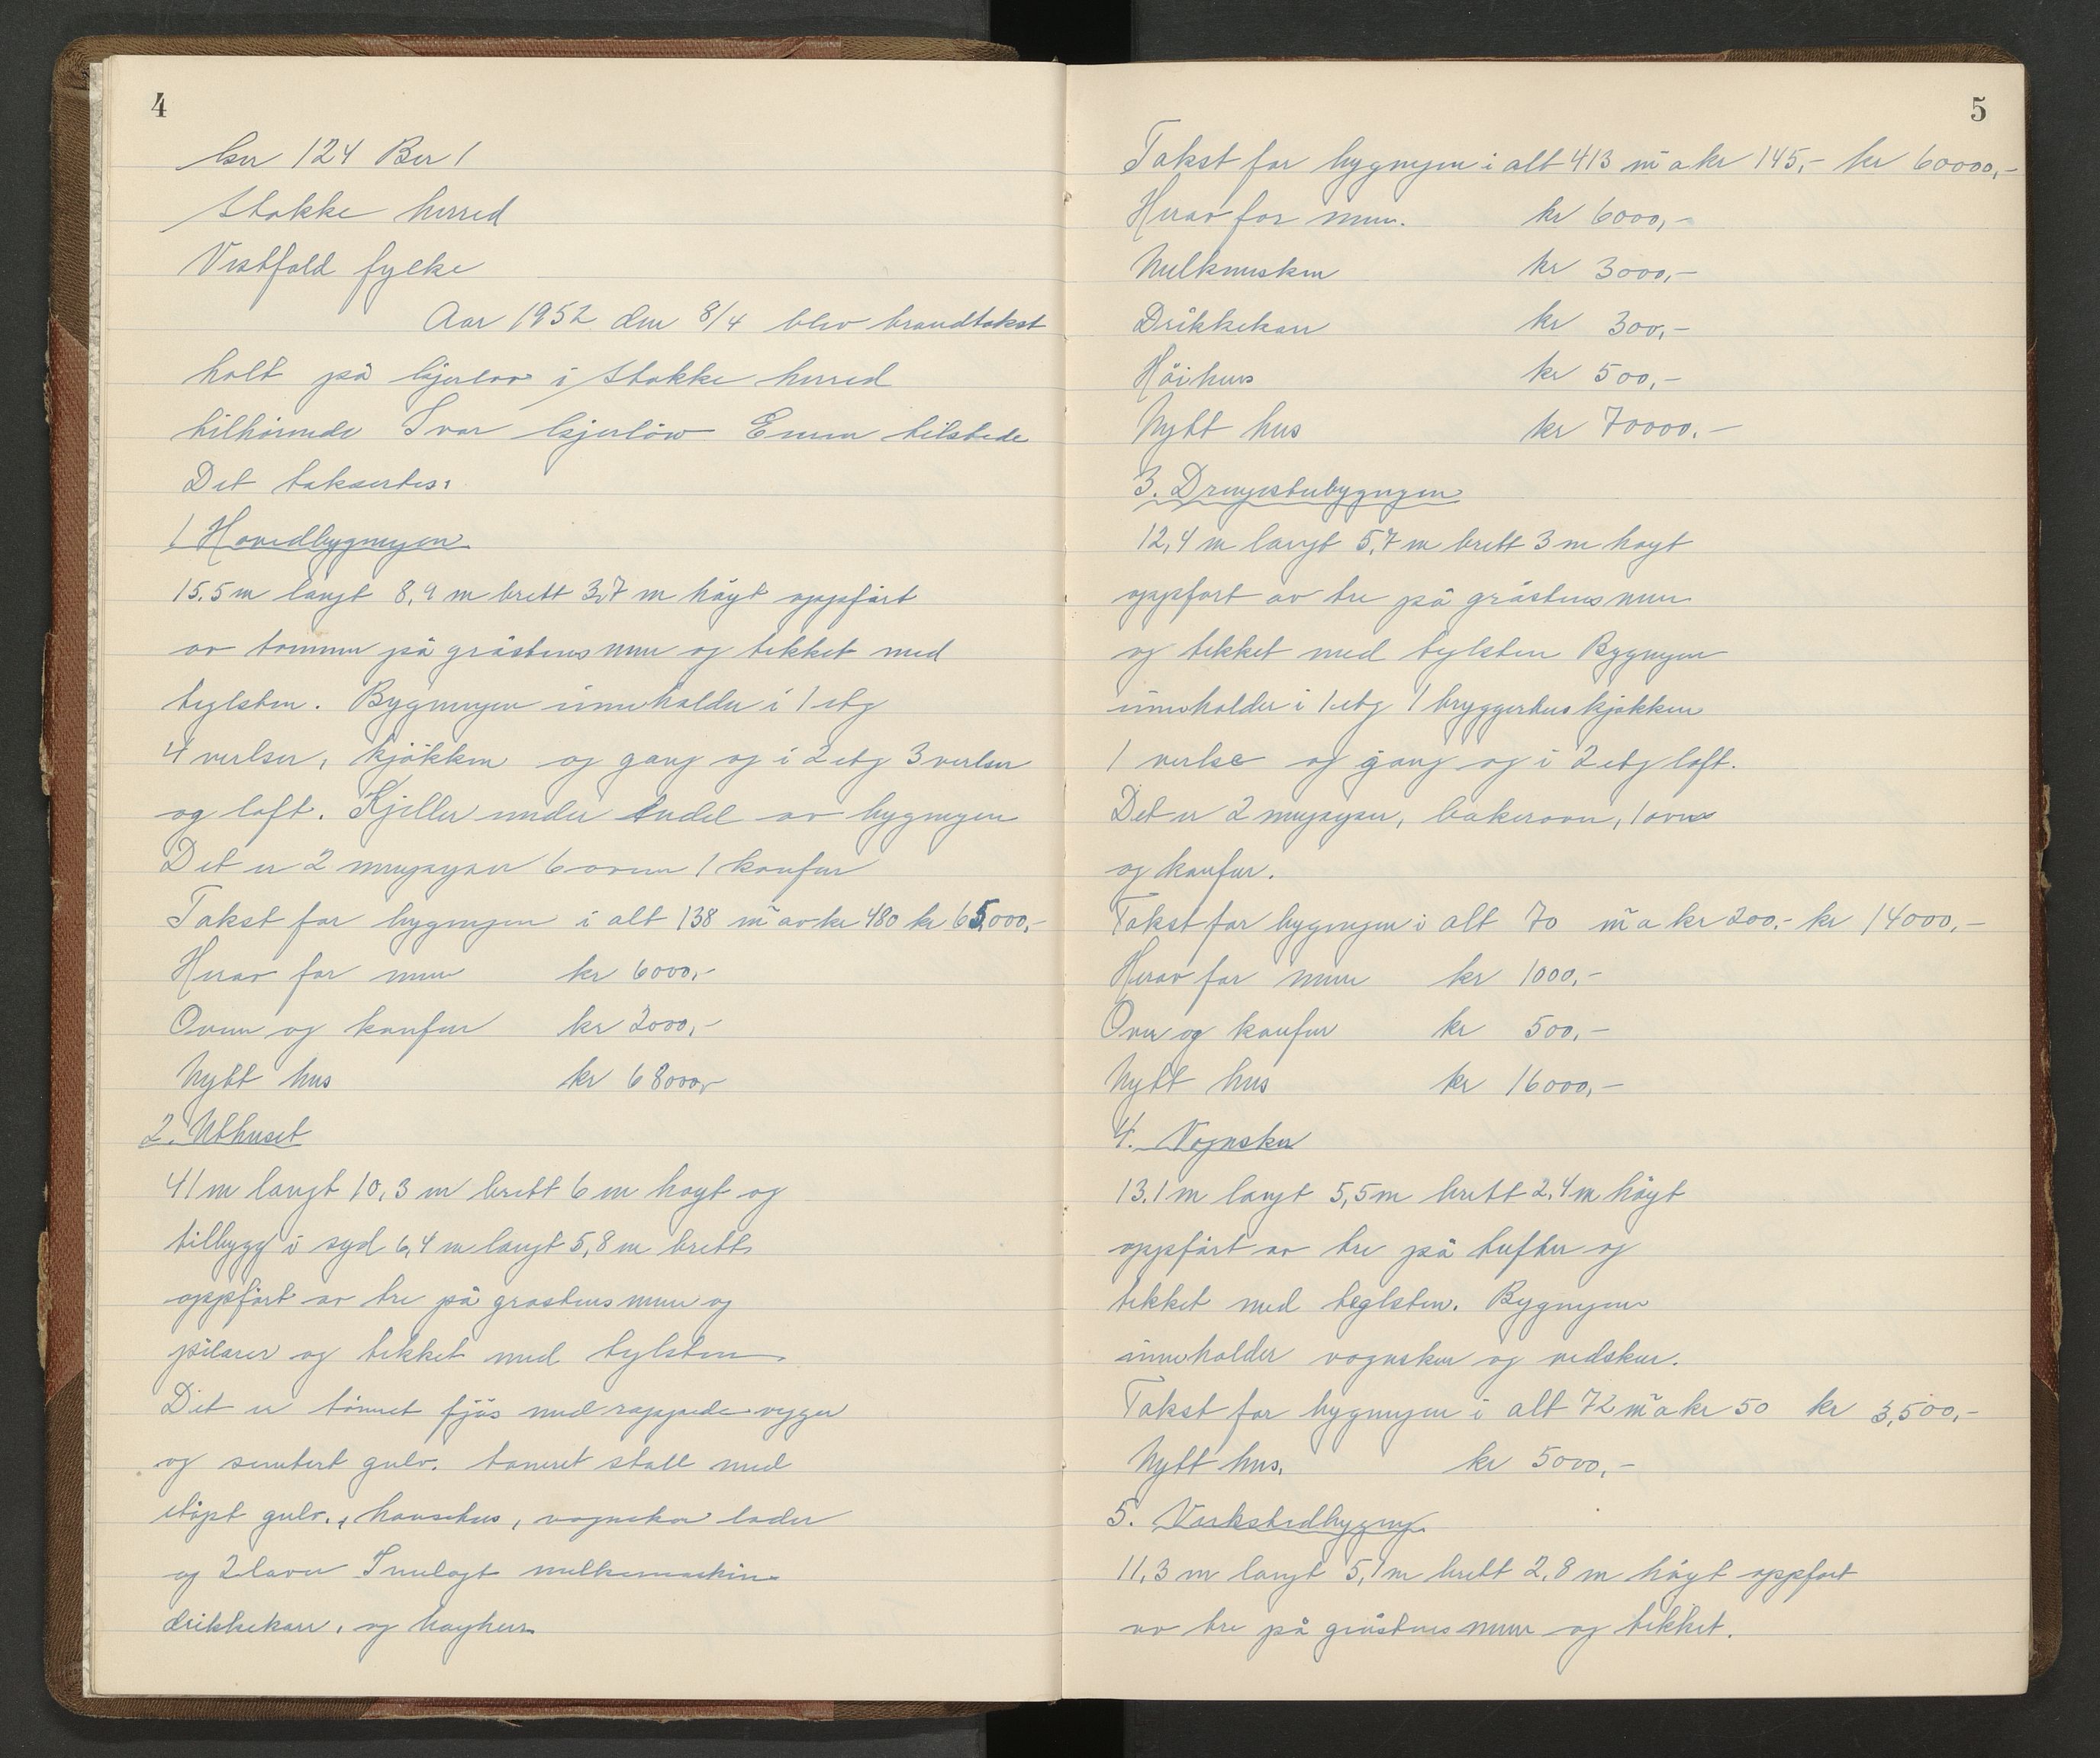 4
Gnr 124 Bnr 1
Stokke herred
Vestfold fylke
Aar 1952 den 8/4 blev brandtakst
holt på Gjerløv i Stokke herred
tilhørende Ivar Gjerløw Eieren tilstede
Det taksertes:
1 Hovedbygningen
15.5 m langt 8,9 m brett 3,7 m høyt oppført
av tømmer på gråstens mur og tekket med
teglsten. Bygningen inneholder i 1 etg
4 verlser, kjøkken og gang og i 2 etg 3 verlser
og loft. Kjeller under endel av bygningen
Det er 2 murpiper 6 ovner 1 komfur
Takst for bygningen i alt 138 m² av kr 480 kr 65000,-
Herav for mur kr 6000,-
Ovner og komfur kr 2000,-
Nytt hus kr 68000,-
2. Uthuset
41 m langt 10,3 m brett 6 m høyt og
tilbygg i syd 6,4 m langt 5,8 m brett
oppført av tre på grastens mur og
pilarer og tekket med teglsten
Det er tømret fjøs med rappede vegger
og sementert gulv. tømret stall med
støpt gulv., hønsehus, vognskur lader
og 2 laver Innlagt melkemaskin
drikkekar, og høyheis
5
Takst for bygningen i alt 413 m² a kr 145,- kr 60000,-
Herav for mur. kr 6000,-
Melkmaskin kr 3000,-
Drikkekarr kr 300,-
Høiheis kr 500,-
Nytt hus kr 70000.-
3. Drengestubygningen
12,4 m langt 5,7 m brett 3 m høyt
oppført av tre på gråstens mur
og tekket med teglsten Bygningen
inneholder i 1 etg 1 bryggerhus kjøkken
1 verlse og gang og i 2 etg loft.
Det er 2 murpiper, bakerovn, 1 ovn
og komfur.
Takst for bygningen i alt 70 m² a kr 200.- kr 14000,-
Herav for mur kr 1000,-
Ovn og komfur kr 500,-
Nytt hus kr 16000,-
4. Vognskur
13,1 m langt 5,5 m brett 2,4 m høyt
oppført av tre på tufter og
tekket med teglsten. Bygningen
inneholder vognskur og vedskur.
Takst for bygningen i alt 72 m² a kr 50 kr 3,500,-
Nytt hus. kr 5000,-
5. Verkstedbygning
11,3 m langt 5,1 m brett 2,8 m høyt oppført
av tre på gråstens mur og tekket.